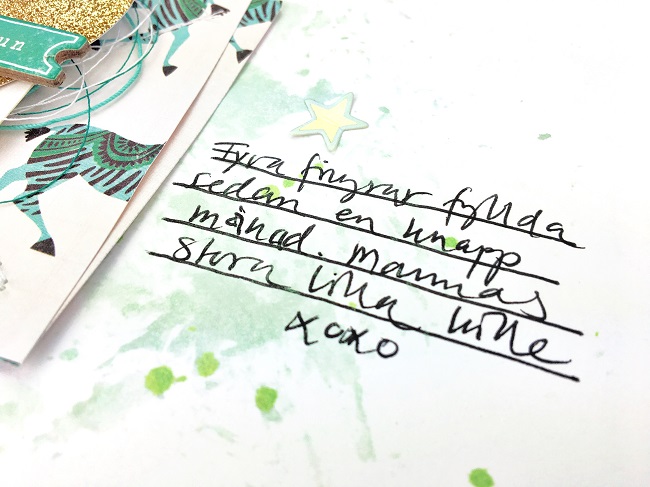 un
Fyra fingrar fyllda
sedan en knapp
månad. Mammas
stora lilla kille
xoxo